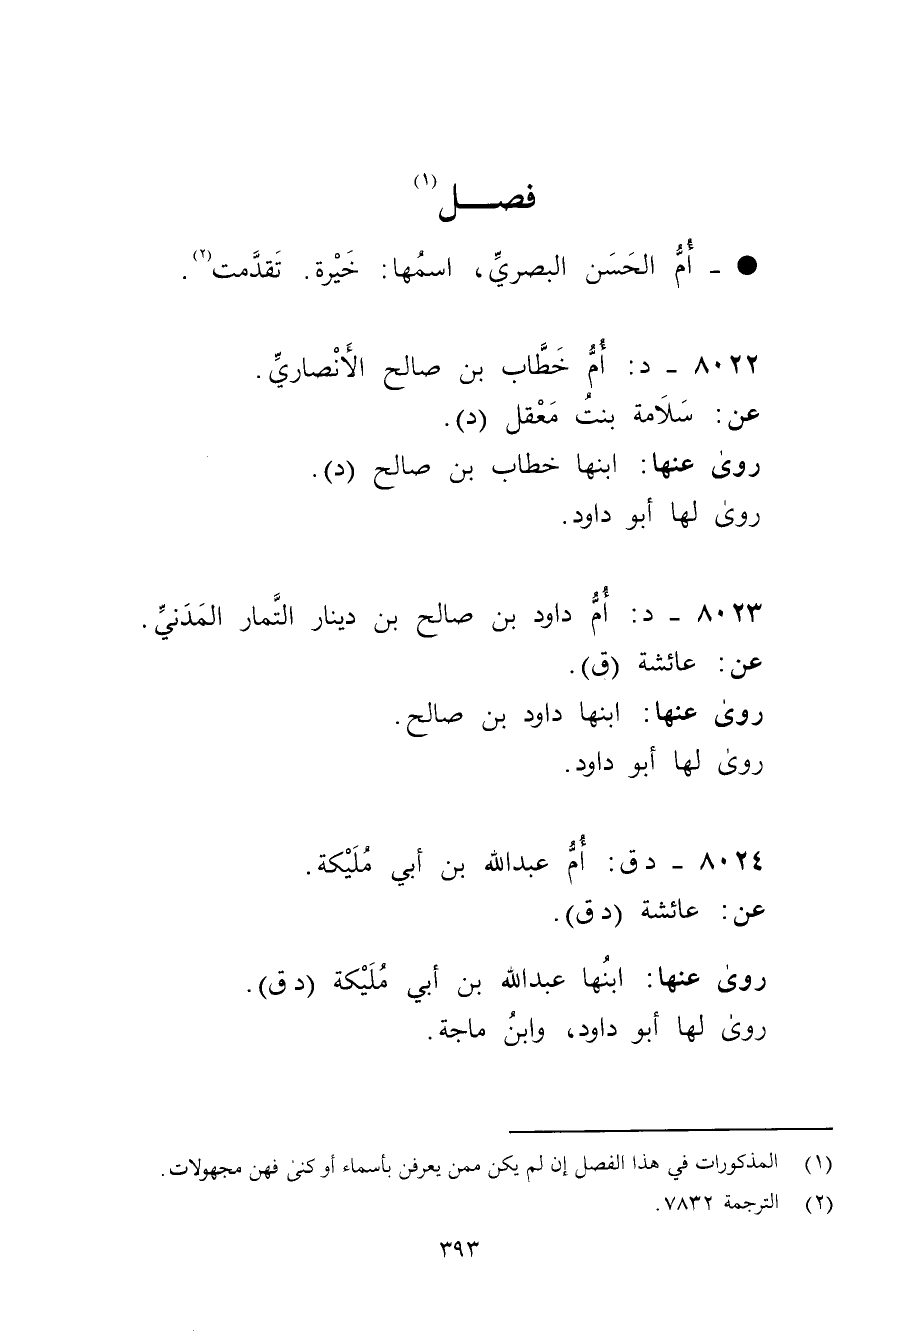 فصـــل(١)
● - أُمُّ الحَسَن البصريِّ، اسمُها: خَيْرة. تَقدَّمت(٢).
٨٠٢٢ - د: أُمُّ خَطَّاب بن صالح الأَنْصاريِّ.
عن: سَلَامة بنتُ مَعْقل (د).
روىٰ عنها: ابنها خطاب بن صالح (د).
روىٰ لها أبو داود.
٨٠٢٣ - د: أُمُّ داود بن صالح بن دينار التَّمار المَدَنيِّ.
عن: عائشة (ق).
روىٰ عنها: ابنها داود بن صالح.
روىٰ لها أبو داود.
٨٠٢٤ - د ق: أُمُّ عبدالله بن أبي مُلَيْكة.
عن: عائشة (د ق).
روىٰ عنها: ابنُها عبدالله بن أبي مُلَيْكة (د ق).
روىٰ لها أبو داود، وابنُ ماجة.
(١) المذكورات في هذا الفصل إن لم يكن ممن يعرفن بأسماء أو كنىٰ فهن مجهولات.
(٢) الترجمة ٧٨٣٢.
٣٩٣